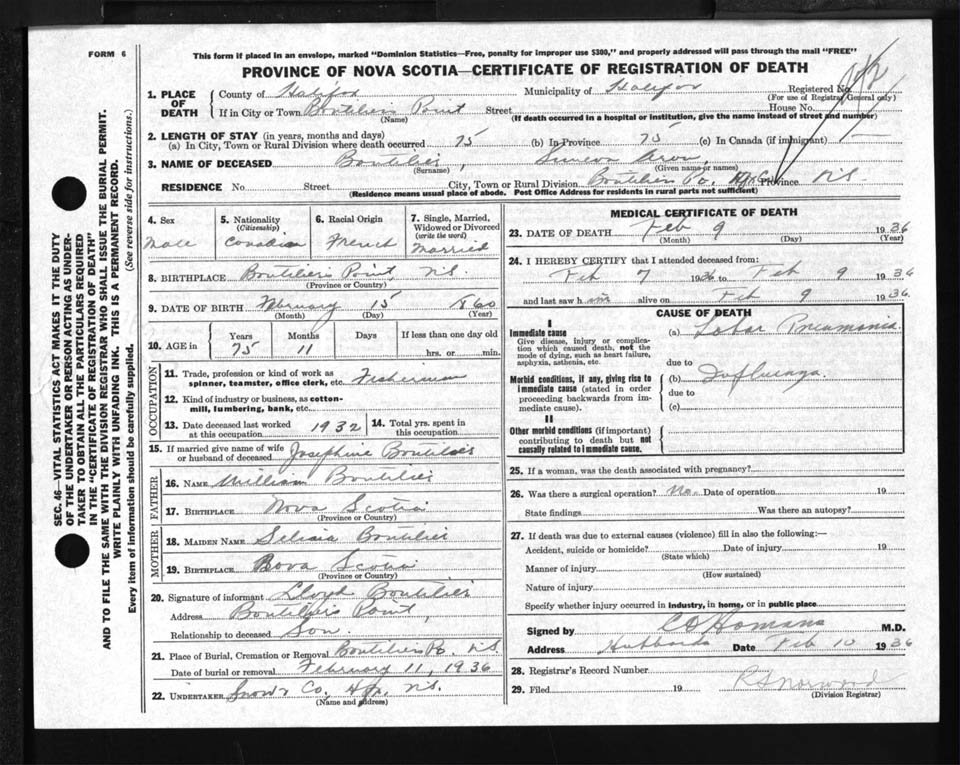 FORM 6
This form if placed in an envelope, marked "Dominion Statistics—Free, penalty for improper use $300," and properly addressed will pass through the mail "FREE"
PROVINCE OF NOVA SCOTIA—CERTIFICATE OF REGISTRATION OF DEATH
SEC. 46—VITAL STATISTICS ACT MAKES IT THE DUTY
OF THE UNDERTAKER OR PERSON ACTING AS UNDER-
TAKER TO OBTAIN ALL THE PARTICULARS REQUIRED
IN THE "CERTIFICATE OF REGISTRATION OF DEATH"
AND TO FILE THE SAME WITH THE DIVISION REGISTRAR WHO SHALL ISSUE THE BURIAL PERMIT.
WRITE PLAINLY WITH UNFADING INK. THIS IS A PERMANENT RECORD.
Every item of information should be carefully supplied. (See reverse side for instructions.)
1. PLACE OF DEATH
County of Halifax Municipality of Halifax Registered No.
(For use of Registrar General only)
If in City or Town Boutiliers Point Street House No.
(Name) (If death occurred in a hospital or institution, give the name instead of street and number)
2. LENGTH OF STAY (in years, months and days)
(a) In City, Town or Rural Division where death occurred 75 (b) In Province 75 (c) In Canada (if immigrant)
3. NAME OF DECEASED Boutilier, Simeon
(Surname) (Given name or names)
RESIDENCE No. Street City, Town or Rural Division Boutiliers Pt. Hfx Co. Province N.S.
(Residence means usual place of abode. Post Office Address for residents in rural parts not sufficient)
4. Sex
Male
5. Nationality
(Citizenship)
Canadian
6. Racial Origin
French
7. Single, Married,
Widowed or Divorced
(write the word)
Married
8. BIRTHPLACE Boutiliers Point, N.S.
(Province or Country)
9. DATE OF BIRTH February 15 1860
(Month) (Day) (Year)
10. AGE in Years Months Days If less than one day old
75 11 hrs. or min.
OCCUPATION
11. Trade, profession or kind of work as
spinner, teamster, office clerk, etc. Fisherman
12. Kind of industry or business, as cotton-
mill, lumbering, bank, etc.
13. Date deceased last worked
at this occupation 1932
14. Total yrs. spent in
this occupation
15. If married give name of wife
or husband of deceased Josephine Boutilier
FATHER
16. NAME William Boutilier
17. BIRTHPLACE Nova Scotia
(Province or Country)
MOTHER
18. MAIDEN NAME Selicia Boutilier
19. BIRTHPLACE Nova Scotia
(Province or Country)
20. Signature of informant Lloyd Boutilier
Address Boutiliers Point,
Relationship to deceased Son.
21. Place of Burial, Cremation or Removal Boutiliers Pt. N.S.
Date of burial or removal February 11, 1936
22. UNDERTAKER Snow & Co, Hfx. N.S.
(Name and address)
MEDICAL CERTIFICATE OF DEATH
23. DATE OF DEATH Feb 9 1936
(Month) (Day) (Year)
24. I HEREBY CERTIFY that I attended deceased from:
Feb 7 1936 to Feb 9 1936
and last saw him alive on Feb 9 1936
CAUSE OF DEATH
I
Immediate cause
Give disease, injury or complica-
tion which caused death, not the
mode of dying, such as heart failure,
asphyxia, asthenia, etc.
(a) Lobar Pneumonia.
due to
Morbid conditions, if any, giving rise to
immediate cause (stated in order
proceeding backwards from im-
mediate cause).
(b) Influenza.
due to
(c)
II
Other morbid conditions (if important)
contributing to death but not
causally related to immediate cause.
25. If a woman, was the death associated with pregnancy?
26. Was there a surgical operation? No. Date of operation 19
State findings Was there an autopsy?
27. If death was due to external causes (violence) fill in also the following:—
Accident, suicide or homicide? Date of injury 19
(State which)
Manner of injury
(How sustained)
Nature of injury
Specify whether injury occurred in industry, in home, or in public place
Signed by M.D.
Address Hubbards Date Feb 10 1936
28. Registrar's Record Number
29. Filed 19 Norwood
(Division Registrar)